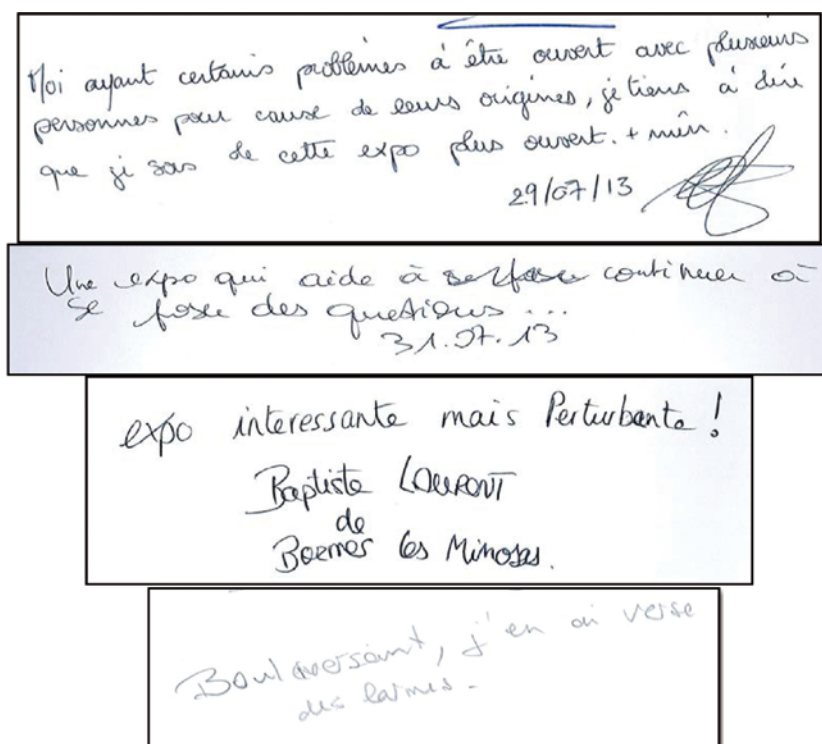 Moi ayant certains problèmes à être ouvert avec plusieurs
personnes pour cause de leurs origines, je tiens à dire
que je sors de cette expo plus ouvert. +
29/07/13
Une expo qui aide à continuer à
se poser des questions ...
31.07.13
expo interessante mais Perturbante !
Baptiste LAURENT
de
Bormes les Mimosas.
Bouleversant, j'en ai versé
des larmes.